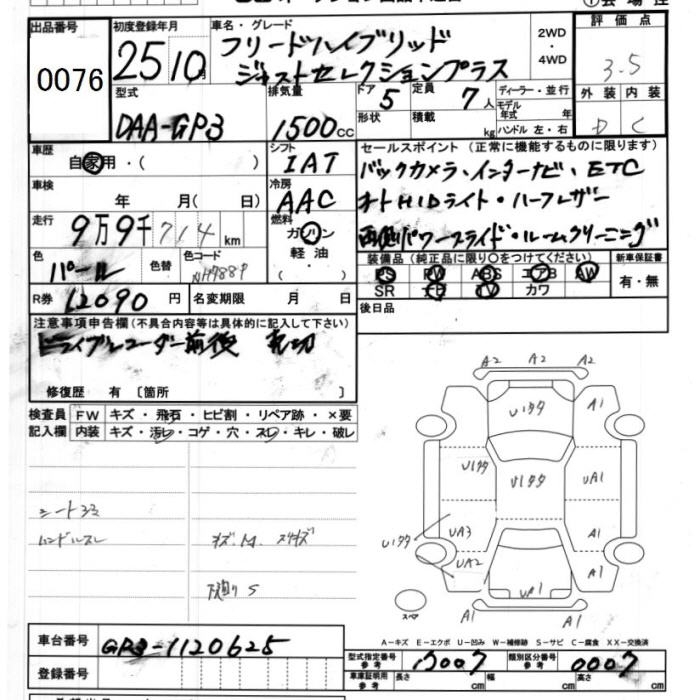 出品番号
0076
初度登録年月
25 10月
車名・グレード
フリードハイブリッド
ジャストセレクションプラス
2WD
・
4WD
評価点
3.5
型式
DAA-GP3
排気量
1500cc
ドア
5
形状
定員
7人
積載
kg
ディーラー・並行
モデル年式 年
ハンドル 左・右
外装 内装
D C
車歴
自家用・( )
シフト
IAT
セールスポイント (正常に機能するものに限ります)
バックカメラ・インターナビ・ETC
オートHIDライト・ハーフレザー
両側パワースライド・ルームクリーニング
車検
年 月( 日)
冷房
AAC
走行
9万9千714km
燃料
ガソリン
軽油
・( )
色
パール
色替
色コード
NH788P
装備品 (純正品に限り○をつけてください)
PS PW ABS エアB AW
SR ナビ TV カワ
新車保証書
有・無
R券
12090円
名変期限 月 日
後日品
注意事項申告欄 (不具合内容等は具体的に記入して下さい)
ドライブレコーダー前後 売切
修復歴 有 〔箇所 〕
検査員記入欄
FW キズ・飛石・ヒビ割・リペア跡・×要
内装 キズ・汚レ・コゲ・穴・スレ・キレ・破レ
シートヨゴ
ハンドルスレ
下廻り S
A2 A2 A2
U1タタ A1
U1タタ U1タタ UA1
U1タタ UA3 A1
UA2 UA1 A1
A1 A1
スペア
A-キズ E-エクボ U-凹み W-補修跡 S-サビ C-腐食 XX-交換済
車台番号
GP3-1120625
登録番号
型式指定番号 参考
17007
類別区分番号 参考
0007
車庫証明用 参考
長さ cm 幅 cm 高さ cm